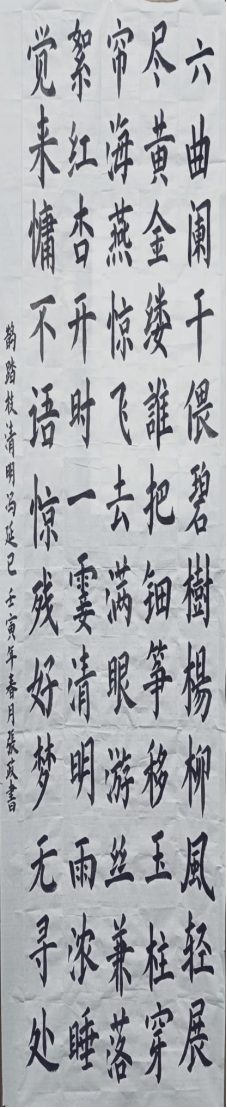 六曲阑干偎碧樹楊柳風轻展
尽黄金缕誰把钿筝移玉柱穿
帘海燕惊飞去满眼游丝兼落
絮红杏开时一霎清明雨浓睡
觉来慵不语惊残好梦无寻处
鹊踏枝清明冯延巳壬寅年春月張書